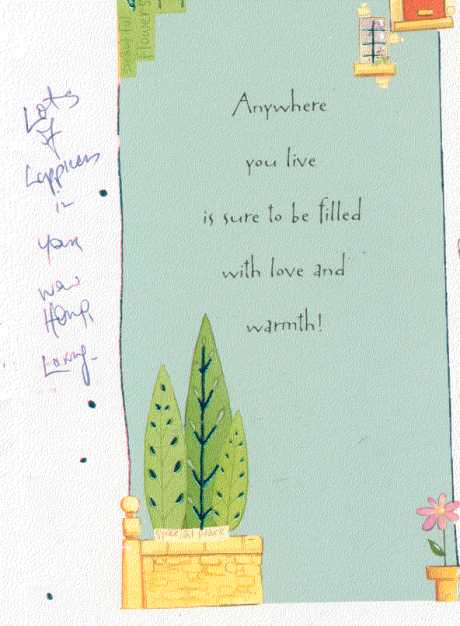 beautiful
flowers
Lots
of
happiness
in
your
new
Home,
Anywhere
you live
is sure to be filled
with love and
warmth!
special place